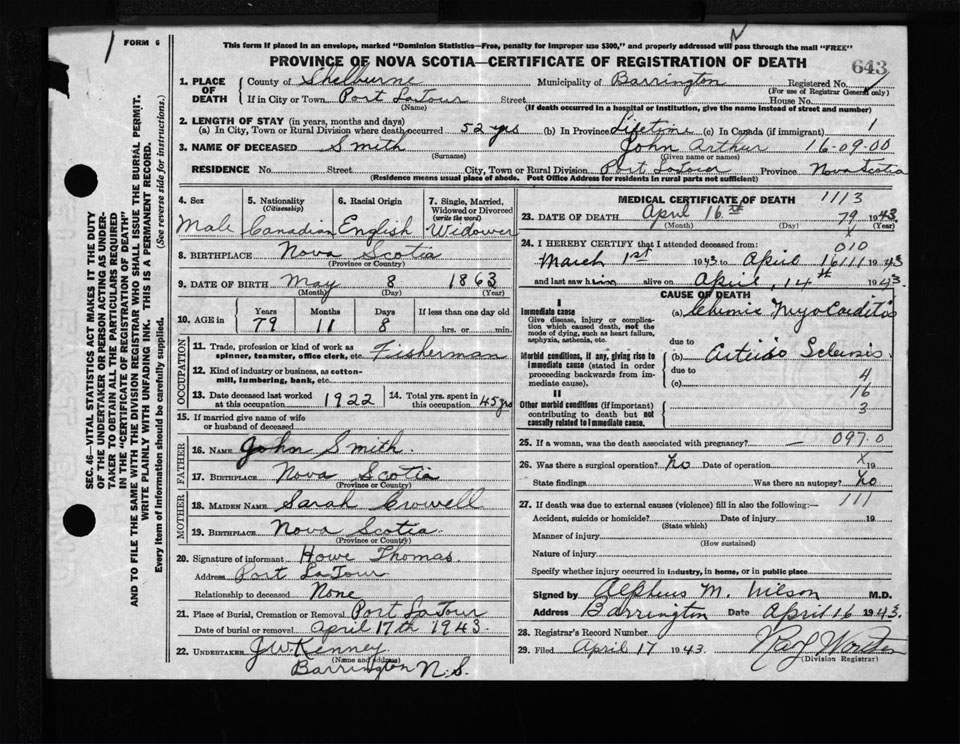 FORM 6
This form if placed in an envelope, marked "Dominion Statistics—Free, penalty for improper use $300," and properly addressed will pass through the mail "FREE"
N
PROVINCE OF NOVA SCOTIA—CERTIFICATE OF REGISTRATION OF DEATH
643
1. PLACE OF DEATH
County of Shelburne Municipality of Barrington Registered No.
(For use of Registrar General only)
If in City or Town Port LaTour Street House No.
(Name) (If death occurred in a hospital or institution, give the name instead of street and number)
2. LENGTH OF STAY (in years, months and days)
(a) In City, Town or Rural Division where death occurred 52 yrs (b) In Province Lifetime (c) In Canada (if immigrant) 1
3. NAME OF DECEASED Smith John Arthur 16-09-00
(Surname) (Given name or names)
RESIDENCE No. Street City, Town or Rural Division Port LaTour Province Nova Scotia
(Residence means usual place of abode. Post Office Address for residents in rural parts not sufficient)
4. Sex
Male
5. Nationality (Citizenship)
Canadian
6. Racial Origin
English
7. Single, Married, Widowed or Divorced (write the word)
Widower
8. BIRTHPLACE Nova Scotia
(Province or Country)
9. DATE OF BIRTH May 8 1863
(Month) (Day) (Year)
10. AGE in Years Months Days If less than one day old
79 11 8 hrs. or min.
OCCUPATION
11. Trade, profession or kind of work as spinner, teamster, office clerk, etc. Fisherman
12. Kind of industry or business, as cotton-mill, lumbering, bank, etc.
13. Date deceased last worked at this occupation 1922
14. Total yrs. spent in this occupation 45 yrs
15. If married give name of wife or husband of deceased
FATHER
16. NAME John Smith
17. BIRTHPLACE Nova Scotia
(Province or Country)
MOTHER
18. MAIDEN NAME Sarah Crowell
19. BIRTHPLACE Nova Scotia
(Province or Country)
20. Signature of informant Howe Thomas
Address Port LaTour
Relationship to deceased None
21. Place of Burial, Cremation or Removal Port LaTour
Date of burial or removal April 17th 1943.
22. UNDERTAKER J.W. Kenney
(Name and address)
Barrington N.S.
MEDICAL CERTIFICATE OF DEATH 1113
23. DATE OF DEATH April 16th 79 1943
(Month) (Day) (Year)
24. I HEREBY CERTIFY that I attended deceased from: 010
March 1st 1943 to April 16 111 1943
and last saw him alive on April, 14th 1943
CAUSE OF DEATH
I
Immediate cause
Give disease, injury or complication which caused death, not the mode of dying, such as heart failure, asphyxia, asthenia, etc.
(a) Chronic Myocarditis
due to
Morbid conditions, if any, giving rise to immediate cause (stated in order proceeding backwards from immediate cause).
(b) Arterio Sclerosis
due to 4
(c) 16
II
Other morbid conditions (if important) contributing to death but not causally related to immediate cause.
3
25. If a woman, was the death associated with pregnancy? — 097.0
26. Was there a surgical operation? No Date of operation X 19
State findings Was there an autopsy? No
27. If death was due to external causes (violence) fill in also the following:— 111
Accident, suicide or homicide? Date of injury 19
(State which)
Manner of injury
(How sustained)
Nature of injury
Specify whether injury occurred in industry, in home, or in public place
Signed by Alpheus M. Wilson M.D.
Address Barrington Date April 16 1943.
28. Registrar's Record Number
29. Filed April 17 1943.
(Division Registrar)
SEC. 46—VITAL STATISTICS ACT MAKES IT THE DUTY
OF THE UNDERTAKER OR PERSON ACTING AS UNDER-
TAKER TO OBTAIN ALL THE PARTICULARS REQUIRED
IN THE "CERTIFICATE OF REGISTRATION OF DEATH"
AND TO FILE THE SAME WITH THE DIVISION REGISTRAR WHO SHALL ISSUE THE BURIAL PERMIT.
WRITE PLAINLY WITH UNFADING INK. THIS IS A PERMANENT RECORD.
Every item of information should be carefully supplied. (See reverse side for instructions.)